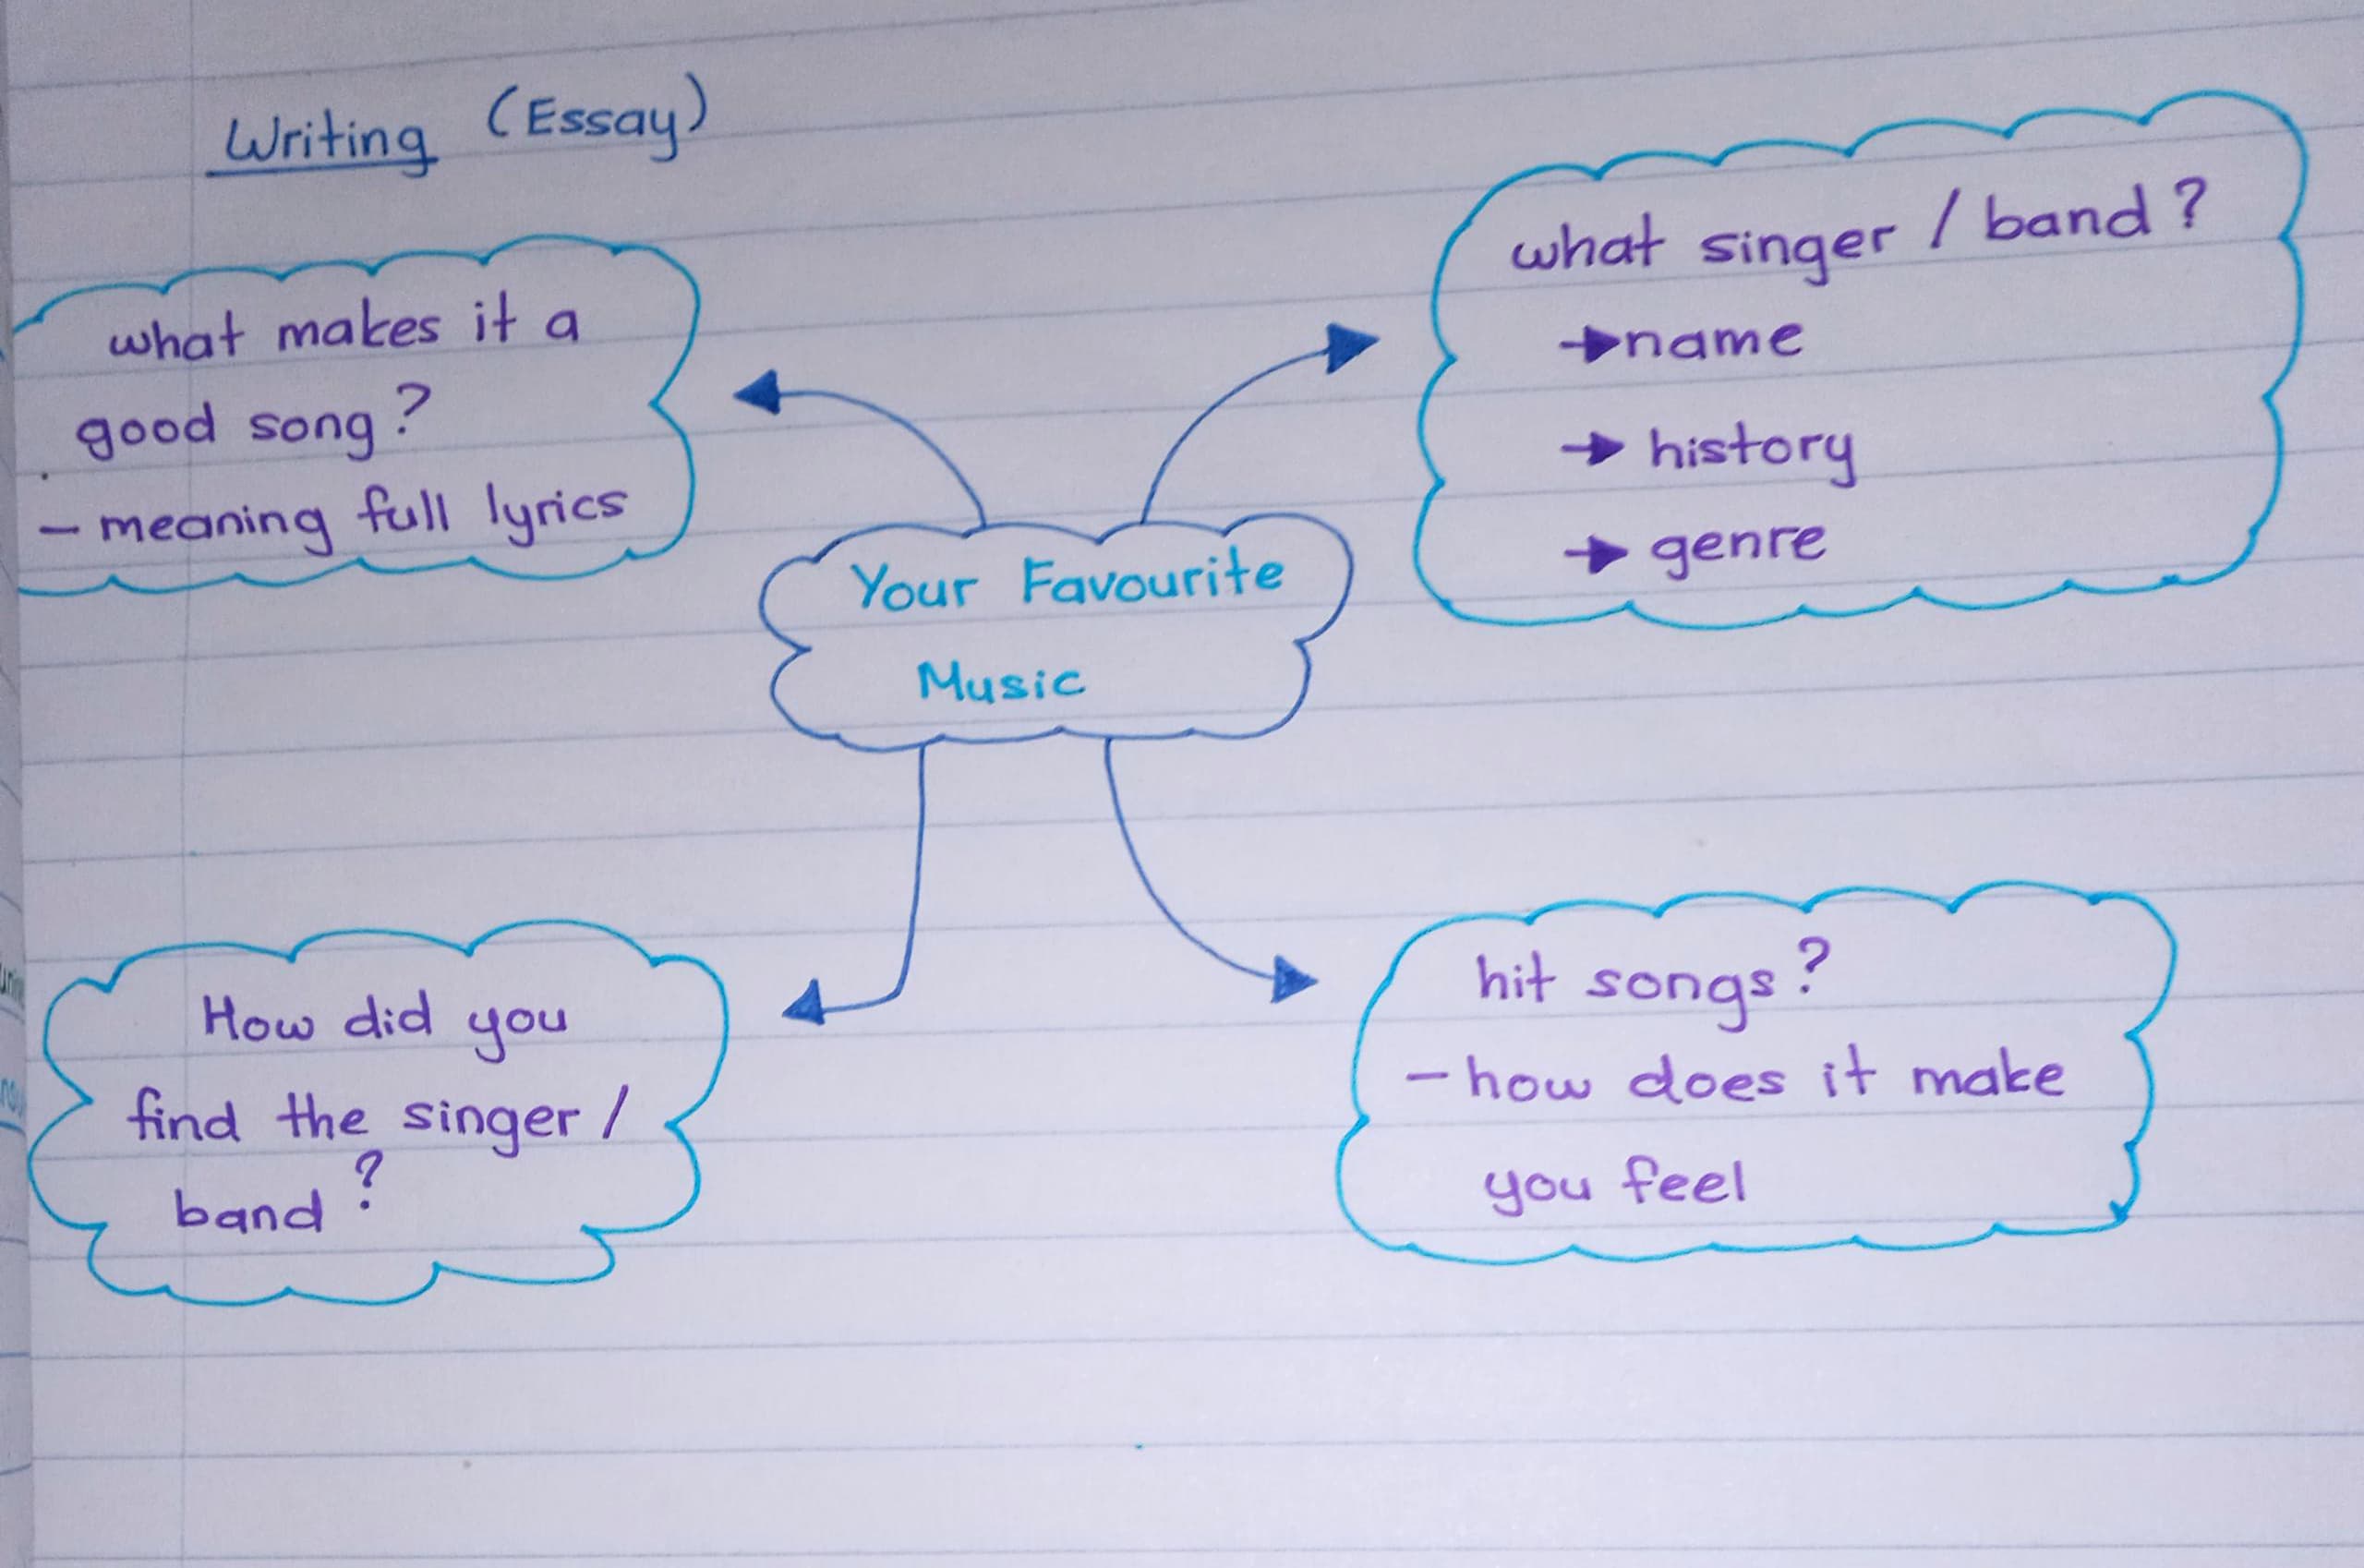 Writing (Essay)
what makes it a
good song?
- meaning full lyrics
what singer / band?
→ name
→ history
→ genre
Your Favourite
Music
How did you
find the singer /
band?
hit songs?
- how does it make
you feel